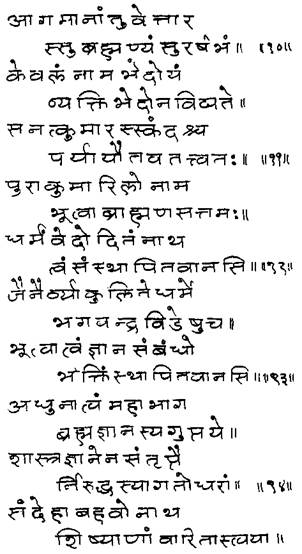 आगमानांतुवेत्तार
स्सुब्रह्मण्यंसुरर्षभं॥ ॥१०॥
केवलंनामभेदोयं
व्यक्तिभेदोनविद्यते॥
सनत्कुमारस्स्कंदश्च
पर्यायौतवतत्त्वतः॥ ॥११॥
पुराकुमारिलोनाम
भूत्वाब्राह्मणसत्तमः॥
धर्मंवेदोदितंनाथ
त्वंसंस्थापितवानसि॥१२॥
जैनैर्व्याकुलितेधर्मे
भगवन्द्रविडेषुच॥
भूत्वात्वंज्ञानसंबंधो
भक्तिंस्थापितवानसि॥१३॥
अधुनात्वंमहाभाग
ब्रह्मज्ञानस्यगुप्तये॥
शास्त्रज्ञानेनसंतृप्तै
र्निरुद्धस्यागतोधरां॥ ॥१४॥
संदेहाबहवोनाथ
शिष्याणांवारितास्त्वया॥